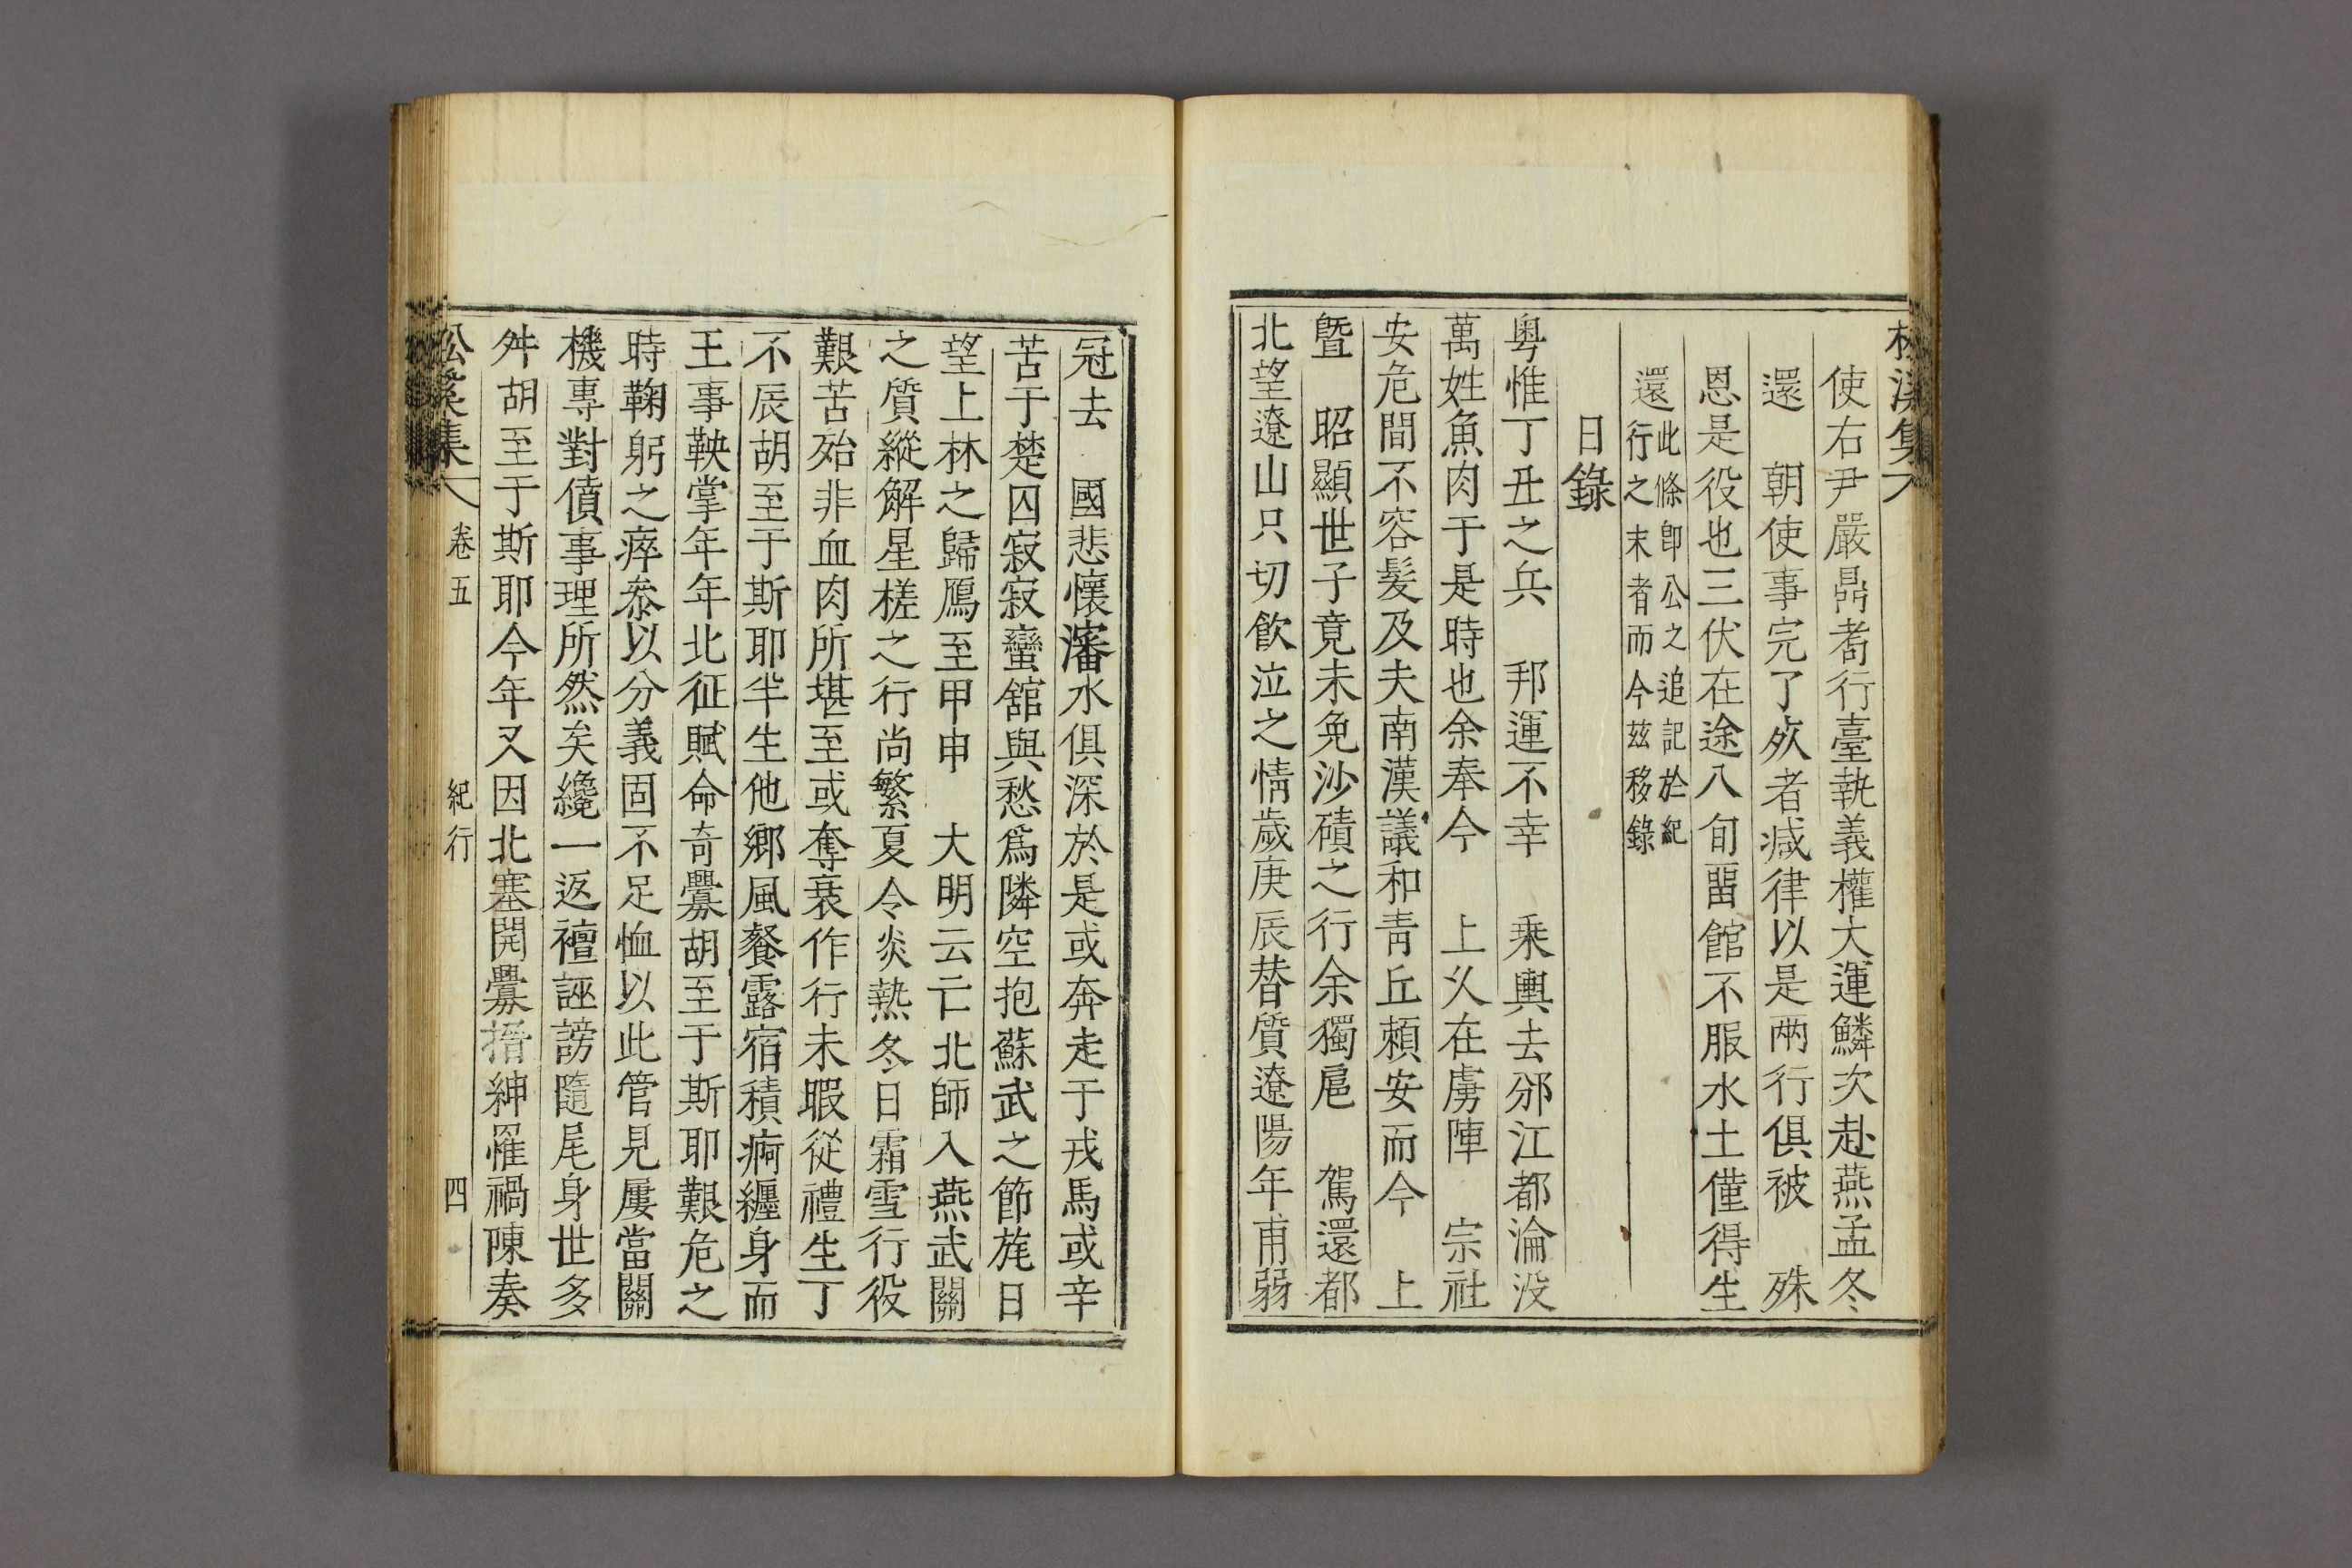 松溪集
使右尹嚴鼎耉行臺執義權大運鱗次赴燕孟冬
還　朝使事完了故者减律以是兩行俱被　殊
恩是役也三伏在途八旬畱館不服水土僅得生
還此條卽公之追記於紀
行之末者而今兹移錄
日錄
粤惟丁丑之兵　邦運不幸　乗輿去邠江都淪没
萬姓魚肉于是時也余奉今　上乂在虜陣　宗社
安危間不容髪及夫南漢議和靑丘頼安而今　上
曁　昭顯世子竟未免沙磧之行余獨扈　駕還都
北望遼山只切飮泣之情歲庚辰替質遼陽年甫弱
冠去　國悲懷瀋水俱深於是或奔走于戎馬或辛
苦于楚囚寂寂蠻舘與愁爲隣空抱蘇武之節旄日
望上林之歸鴈至甲申　大明云亡北師入燕武關
之質縱解星槎之行尚繁夏令炎熱冬日霜雪行役
艱苦殆非血肉所堪至或奪衰作行未暇從禮生丁
不辰胡至于斯耶半生他鄉風餐露宿積痾纒身而
王事鞅掌年年北征賦命奇釁胡至于斯耶艱危之
時鞠躬之瘁叅以分義固不足恤以此管見屢當關
機專對僨事理所然矣纔一返襢誣謗隨尾身世多
舛胡至于斯耶今年又因北塞開釁搢紳罹禍陳奏
松溪集
卷五
紀行
四